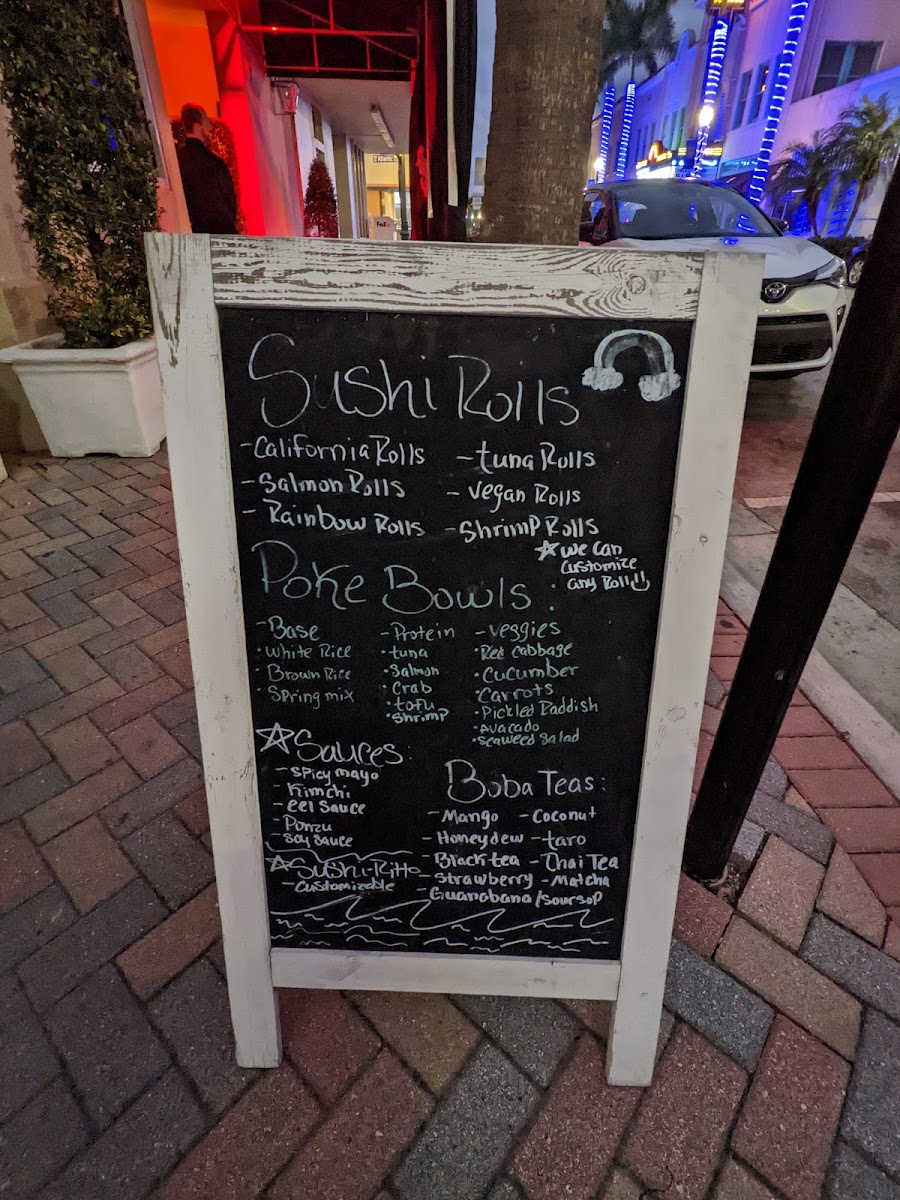 Sushi Rolls
-California Rolls
-Salmon Rolls
-Rainbow Rolls
-tuna Rolls
-vegan Rolls
-Shrimp Rolls
☆we can
customize
any Roll
Poke Bowls:
-Base
·White Rice
·Brown Rice
·Spring mix
-Protein
·tuna
·Salmon
·Crab
·tofu
·Shrimp
-veggies
·Red Cabbage
·Cucumber
·Carrots
·Pickled Raddish
·Avocado
·Seaweed Salad
☆Sauces:
-Spicy mayo
-Kimchi
-eel Sauce
-Ponzu
-Soy Sauce
☆Sushi-Ritto
-Customizable
Boba Teas:
-Mango -Coconut
-Honeydew -taro
-Black tea -Thai Tea
-Strawberry -Matcha
Guanabana/soursop
FedEx